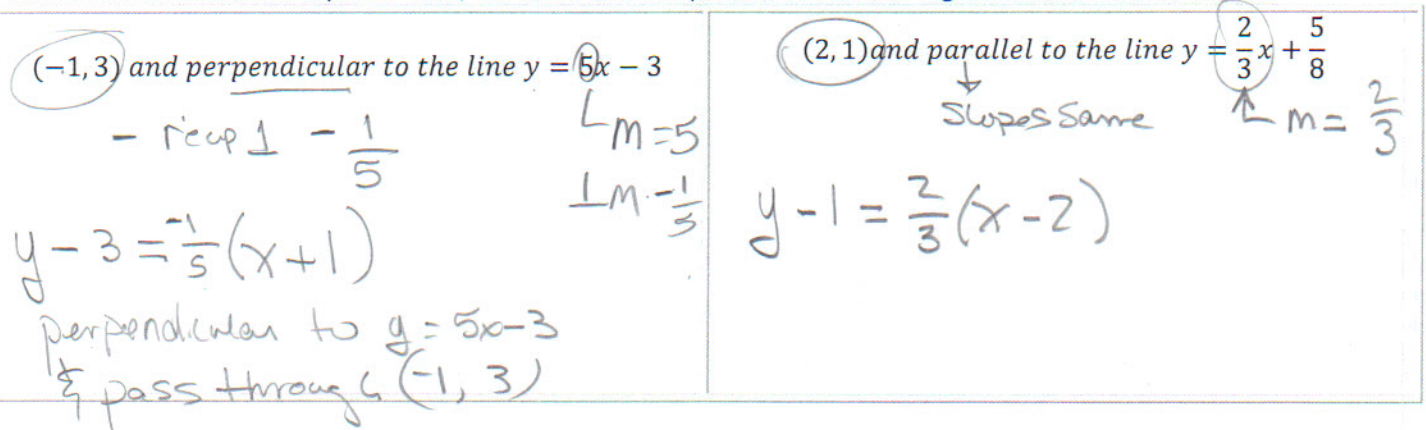 (−1, 3) and perpendicular to the line y = 5x − 3
- recip 1 - 1/5
m = 5
⊥m - 1/5
y - 3 = -1/5 (x + 1)
perpendicular to y = 5x - 3
& pass through (-1, 3)
(2, 1) and parallel to the line y = 2/3 x + 5/8
slopes same
m = 2/3
y - 1 = 2/3 (x - 2)